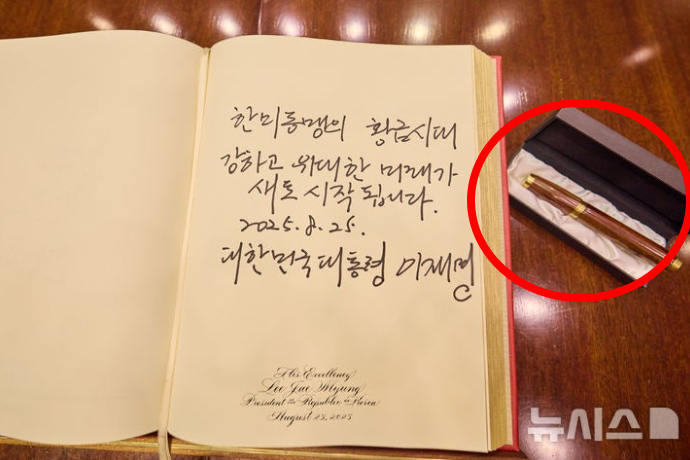 한미동맹의 황금시대
강하고 위대한 미래가
새로 시작됩니다.
2025.8.25.
대한민국 대통령 이재명
His Excellency
Lee Jae Myung
President of the Republic of Korea
August 25, 2025
뉴시스